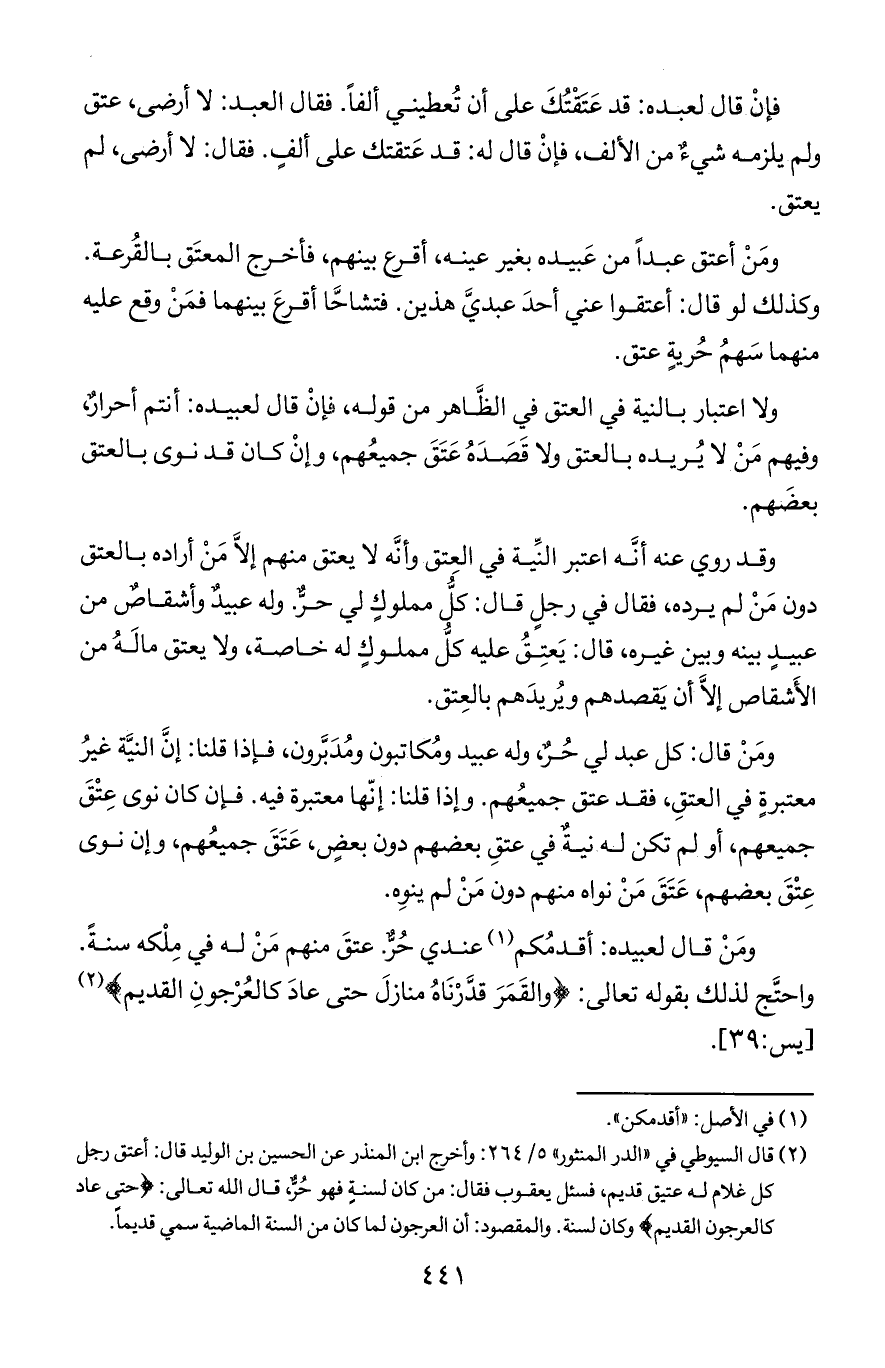 فإنْ قال لعبـده: قد عَتَقْتُكَ على أن تُعطينـي ألفاً. فقال العبـد: لا أرضى، عتق
ولم يلزمـه شيءٌ من الألف، فإنْ قال له: قـد عَتقتك على ألفٍ. فقال: لا أرضى، لم
يعتق.
ومَنْ أعتق عبـداً من عَبيـده بغير عينـه، أقـرع بينهم، فأخـرج المعتَق بـالقُرعـة.
وكذلك لو قال: أعتقـوا عني أحدَ عبديَّ هذين. فتشاحَّا أقـرعَ بينهما فمَنْ وقع عليه
منهما سَهمُ حُريةٍ عتق.
ولا اعتبار بـالنية في العتق في الظَّاهر من قولـه، فإنْ قال لعبيـده: أنتم أحرارٌ،
وفيهم مَنْ لا يُـريـده بـالعتق ولا قَصَـدَهُ عَتَقَ جميعُهم، وإنْ كـان قـد نـوى بـالعتق
بعضَهم.
وقـد روي عنه أنَّـه اعتبر النِّيـة في العِتق وأنَّه لا يعتق منهم إلاَّ مَنْ أراده بـالعتق
دون مَنْ لم يـرده، فقال في رجلٍ قـال: كلُّ مملوكٍ لي حـرٌّ. وله عبيدٌ وأشقـاصٌ من
عبيـدٍ بينه وبين غيـره، قال: يَعتِـقُ عليه كلُّ مملـوكٍ له خـاصـة، ولا يعتق مالَـهُ من
الأَشقاص إلاَّ أن يَقصدهم ويُريدَهم بالعِتق.
ومَنْ قال: كل عبد لي حُـرٌ، وله عبيد ومُكاتبون ومُدَبَّرون، فـإذا قلنا: إنَّ النيَّة غيرُ
معتبرةٍ في العتقِ، فقـد عتق جميعُهم. وإذا قلنـا: إنّها معتبرة فيه. فـإن كان نوى عِتْقَ
جميعهم، أو لم تكن لـه نيـةٌ في عتقِ بعضهم دون بعضٍ، عَتَقَ جميعُهم، وإن نـوى
عِتْقَ بعضهم، عَتَقَ مَنْ نواه منهم دون مَنْ لم ينوِه.
ومَنْ قـال لعبيده: أقـدمُكم(١) عنـدي حُرٌّ. عتقَ منهم مَنْ لـه في مِلْكه سنـةً.
واحتَّج لذلك بقوله تعالى: ﴿والقَمَرَ قدَّرْنَاهُ منازلَ حتى عادَ كالعُرْجونِ القديم﴾(٢)
[يس:٣٩].
(١) في الأصل: «أقدمكن».
(٢) قال السيوطي في «الدر المنثور» ٥/ ٢٦٤: وأخرج ابن المنذر عن الحسين بن الوليد قال: أعتق رجل
كل غلام لـه عتيق قديم، فسئل يعقـوب فقال: من كان لسنـةٍ فهو حُرٌّ، قـال الله تعـالى: ﴿حتى عاد
كالعرجون القديم﴾ وكان لسنة. والمقصود: أن العرجون لما كان من السنة الماضية سمي قديماً.
٤٤١